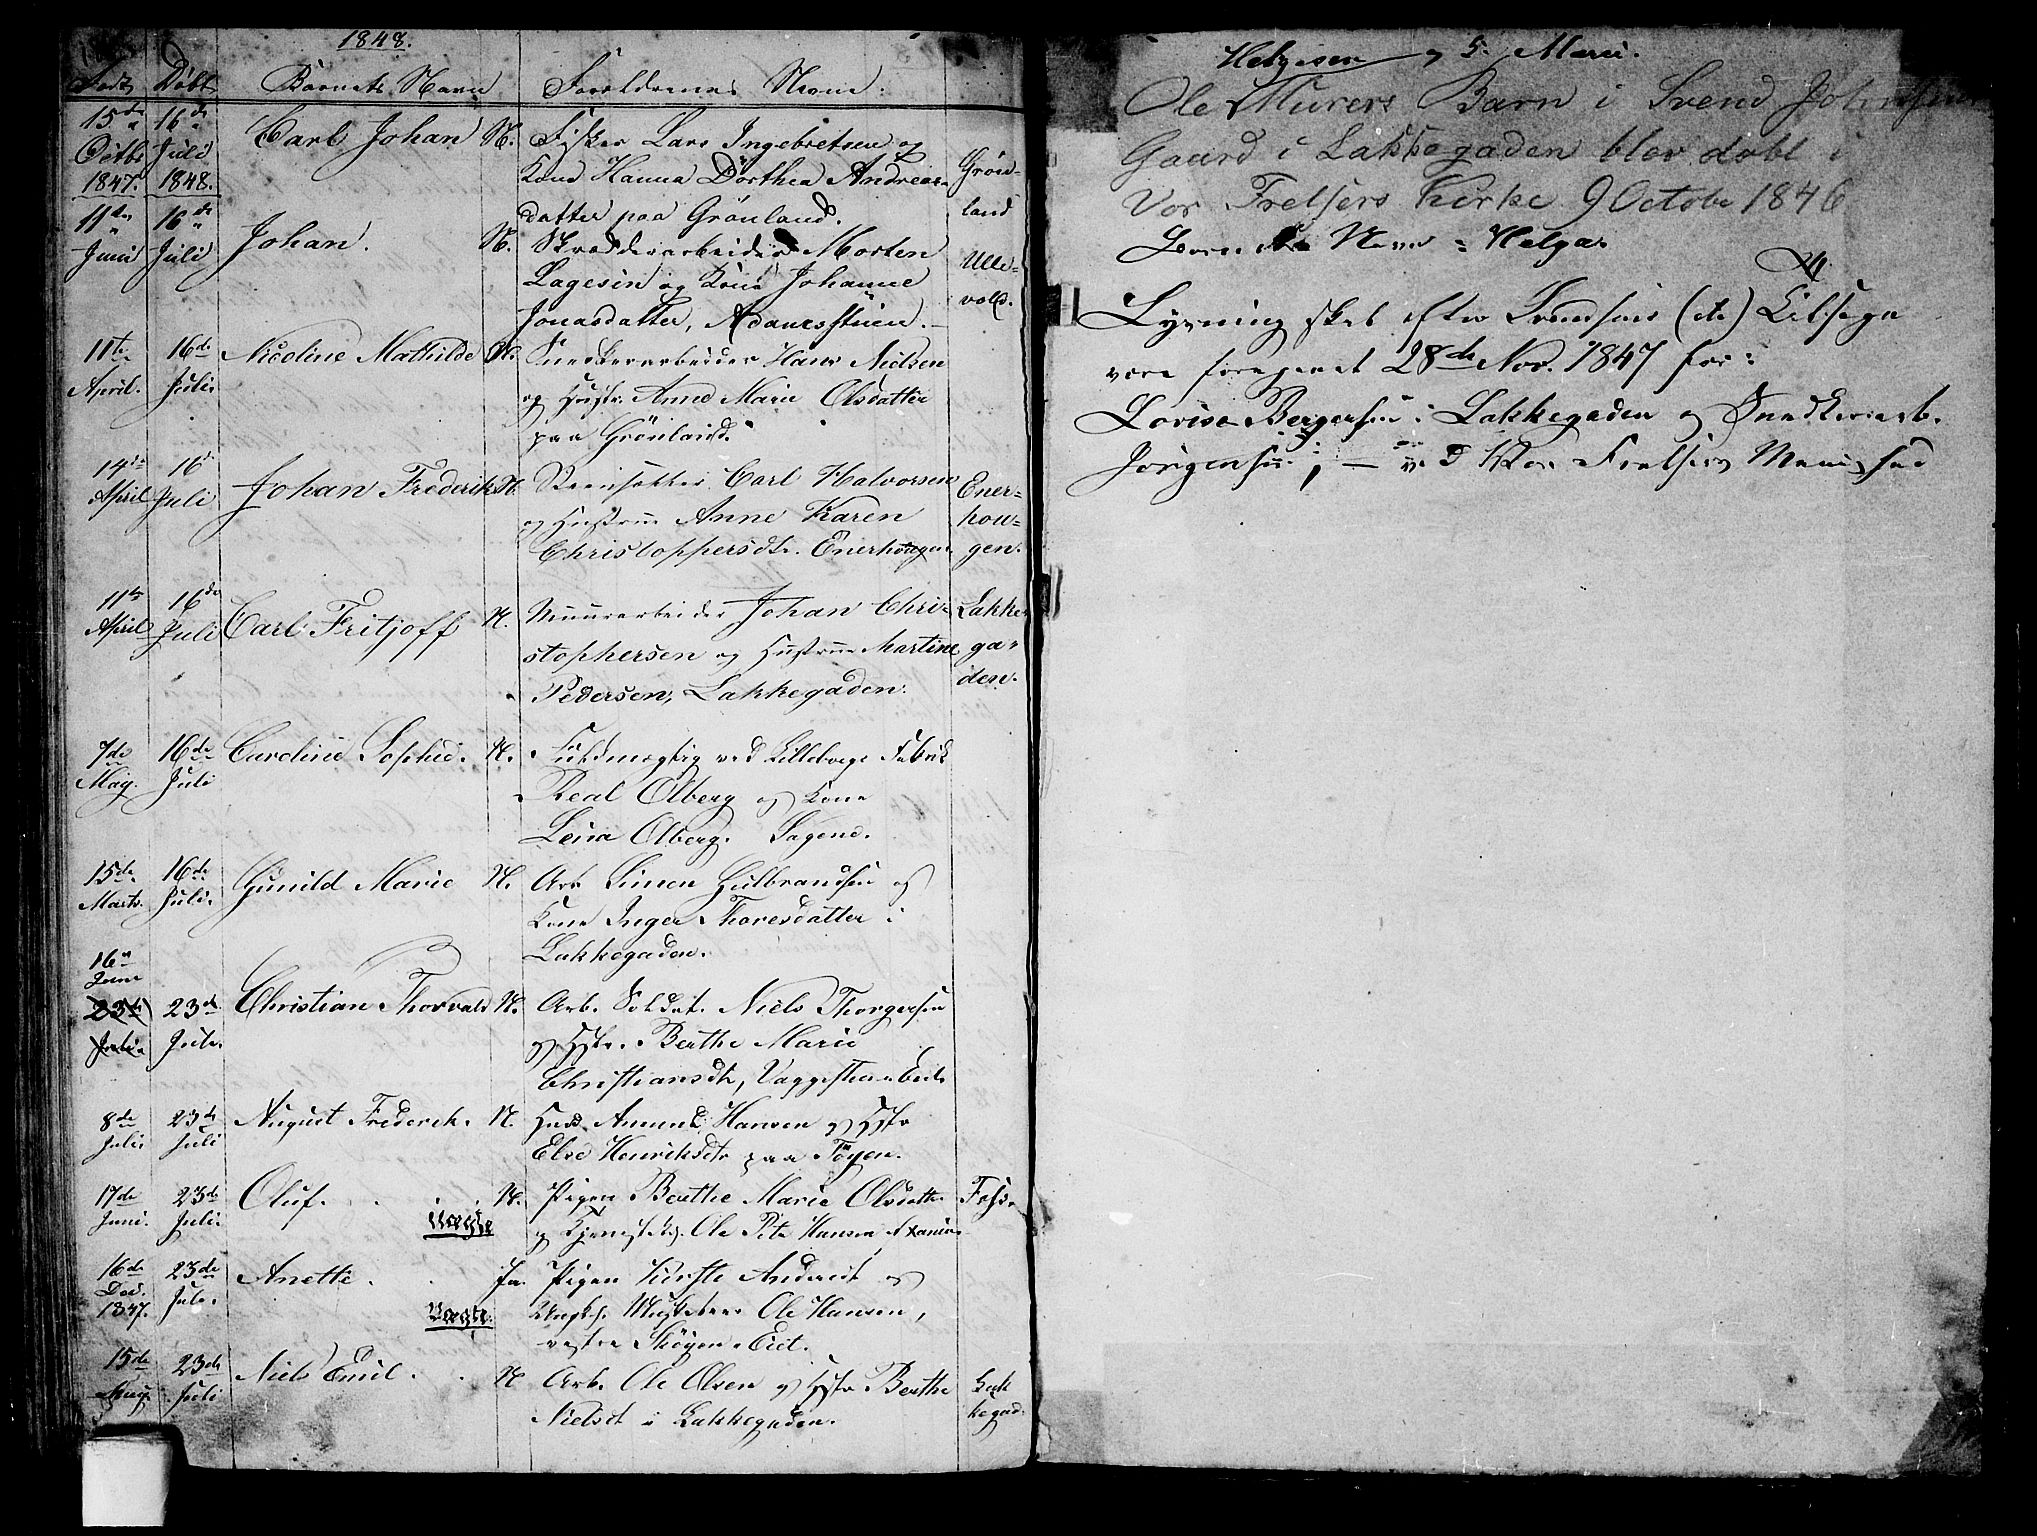 1848.
Født Døbt Barnets Navn Forældrenes Navne.
15de Octbr 1847. 16de Juli 1848. Carl Johan N. Fisker Lars Ingebretsen og
Kone Hanna Dorthea Andreas- Grøn-
datter paa Grönland. land
11te Juni 16de Juli Johan. N. Skrædderarbeider Morten
Lagesen og Kone Johanne Ulle-
Jonasdatter, Adamsstuen. vold.
11te April. 16de Juli. Nicoline Mathilde N. Snedkerarbeider Hans Nielsen
og Hustr. Anne Marie Olsdatter
paa Grönland.
14de April 16de Juli Johan Frederik N. Steenhukker Carl Halvorsen Ener-
og Hustrue Anne Karen hou-
Christoppersdtr. Enerhougen. gen.
11te April 16de Juli Carl Fritjoff N. Muurarbeider Johan Chri- Lakke
stophersen og Hustrue Martine ga-
Pedersen, Lakkegaden. den.
7de May. 16de Juli Caroline Sophie. N. Fuldmægtig ved Lilleborgs Fabrik
Real Olberg og Kone
Lena Olberg. Sagene.
15de Marts. 16de Juli. Gunild Marie N. Arb Simen Gulbrandsen og
Kone Inger Thoresdatter i
Lakkegaden.
16de Juni 23de Juli 23de Juli. Christian Thorvald N. Arb. Soldat. Niels Thorgersen
og Hstr. Berthe Marie
Christiansdtr, Vaggesteen Eiet
8de Juli 23de Juli August Frederek. N. Husm. Amund Hansen og Hstr
Else Henriksdtr paa Töyen.
17de Juni. 23de Juli. Oluf. N. Pigen Berthe Marie Olsdatter Føds.
uægte og Ole Peter Hansen
16de Dec. 1847. 23de Juli. Anette. Ja. Pigen Kirstie Andersdt og
Uægte. Ungk. Musketeer Ole Hansen,
vestre Skøyen Eiet.
15de May 23de Juli Niels Emil. N Arb. Ole Olsen og Hstr Berthe Lak
Nielsdt i Lakkegaden. kegad.
Helgesen og S. Marie.
Ole Murers Barn i Svend Johnsens
Gaard i Lakkegaden blev døbt i
Vor Frelsers Kirke 9 Octobr 1846
Barnets Navn = Helga
Lysning skal efter
være foregaaet 28de Nov. 1847 for:
Lovise Bergersen i Lakkegaden og Snedkerarb.
Jörgensen; — ved Vor Frelsers Menighed